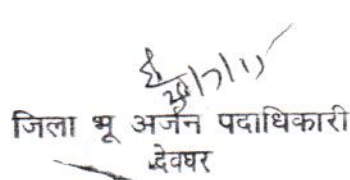 जिला भू अर्जन पदाधिकारी
देवघर